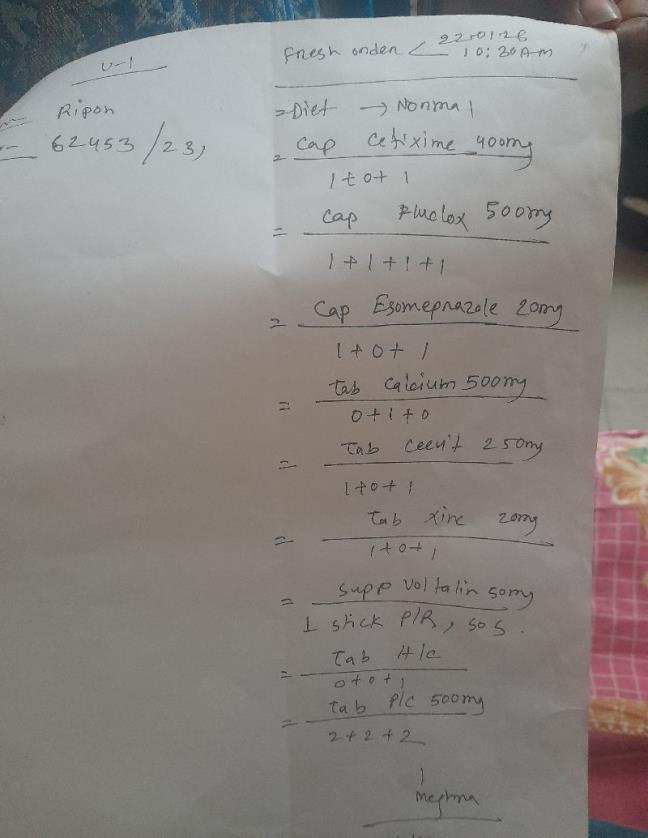 U-1
Ripon
62453/23,
Fresh order < 22.01.26
10:30 AM
=Diet → Normal
= Cap Cefixime 400mg
1+0+1
= Cap Fluclox 500mg
1+1+1+1
= Cap Esomeprazole 20mg
1+0+1
= tab Calcium 500mg
0+1+0
= Tab Ceevit 250mg
1+0+1
= Tab Xinc 20mg
1+0+1
= Supp Voltalin 50mg
1 stick P/R, SOS.
= Tab H/c
0+0+1
= tab P/c 500mg
2+2+2
Meghna